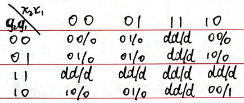 x₂x₁
q₂q₁ 00 01 11 10
00 00/0 01/0 dd/d 00/0
01 01/0 01/0 dd/d 10/0
11 dd/d dd/d dd/d dd/d
10 10/0 01/0 dd/d 00/1